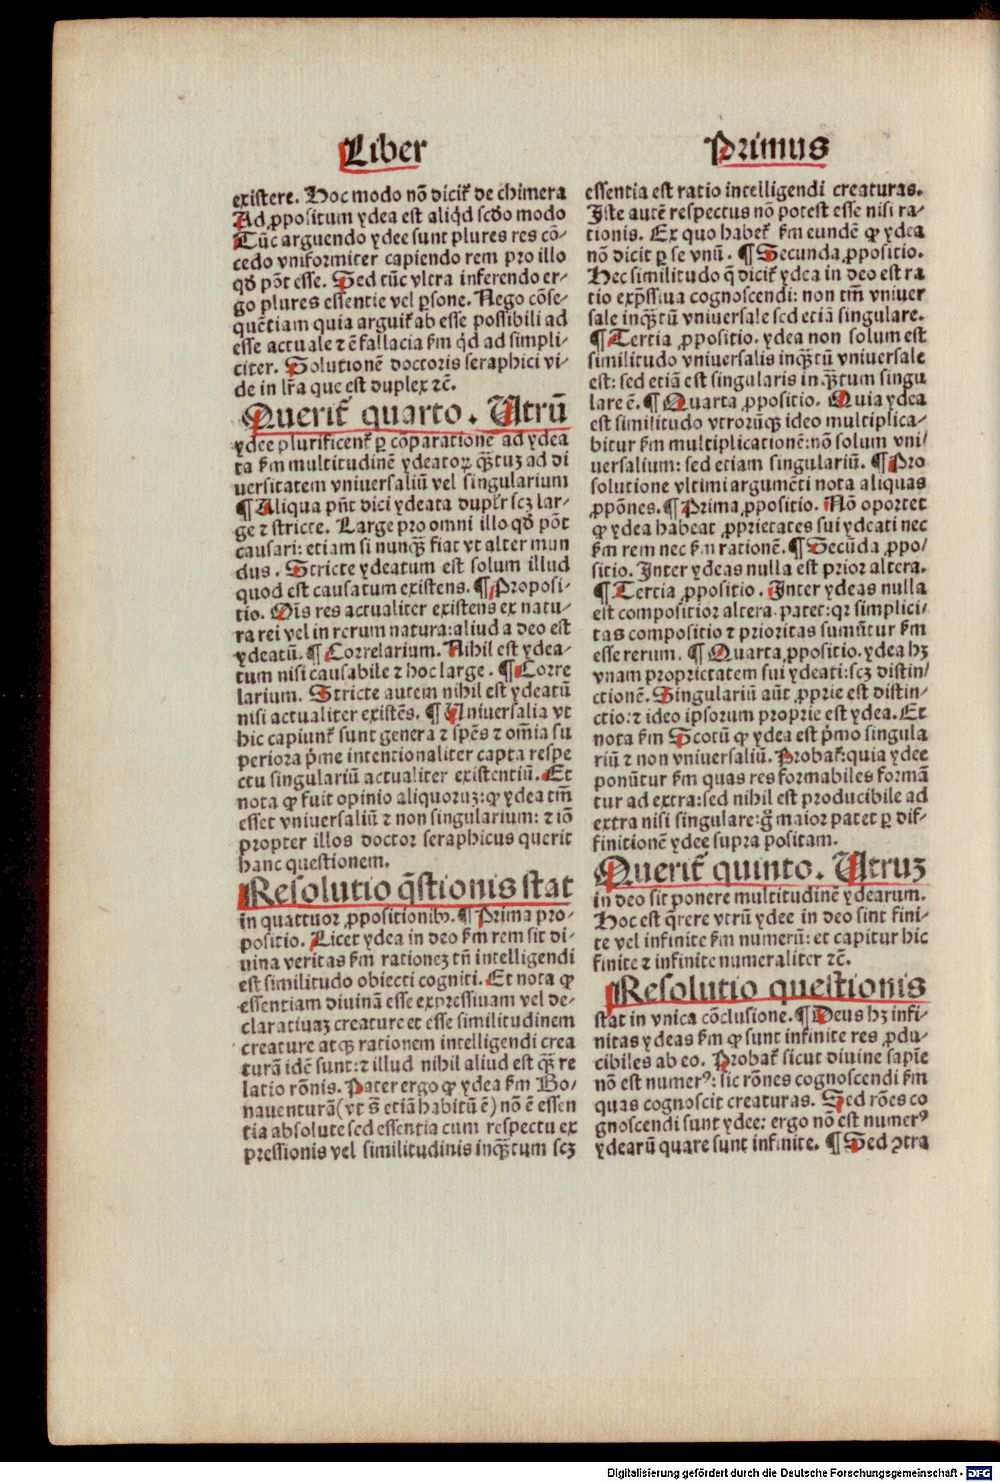 Liber
Primus
existere. Hoc modo nõ dicit᷑ de chimera
Ad ꝓpositum ydea est aliq̇d scḋo modo
Tūc arguendo ydee sunt plures res cõ-
cedo vniformiter capiendo rem pro illo
qḋ põt esse. Sed tūc vltra inferendo er-
go plures essentie vel ꝑsone. Nego cõse-
quẽtiam quia arguit᷑ ab esse possibili ad
esse actuale ⁊ ẽ fallacia ẜm q̇d ad simpli-
citer. Solutionẽ doctoris seraphici vi-
de in lr̃a que est duplex ⁊c̃.
Querit᷑ quarto. Utrū
ydee plurificent᷑ ꝑ cõparationẽ ad ydea
ta ẜm multitudinẽ ydeatoꝝ q̃ꝫtuꝫ ad di
uersitatem vniuersaliū vel singularium
¶ Aliqua pñt dici ydeata duplr̃ scꝫ lar-
ge ⁊ stricte. Large pro omni illo qḋ põt
causari: etiam si nunq̃ꝫ fiat vt alter mun
dus. Stricte ydeatum est solum illud
quod est causatum existens. ¶ Proposi-
tio. Oĩs res actualiter existens ex natu-
ra rei vel in rerum natura: aliud a deo est
ydeatū. ¶ Correlarium. Nihil est ydea-
tum nisi causabile ⁊ hoc large. ¶ Corre
larium. Stricte autem nihil est ydeatū
nisi actualiter existẽs. ¶ Uniuersalia vt
hic capiunt᷑ sunt genera ⁊ spẽs ⁊ om̃ia su
periora p̃me intentionaliter capta respe
ctu singulariū actualiter existentiū. Et
nota ꝙ fuit opinio aliquoruꝫ: ꝙ ydea tm̃
esset vniuersaliū ⁊ non singularium: ⁊ iõ
propter illos doctor seraphicus querit
hanc questionem.
Resolutio q̃stionis stat
in quattuor ꝓpositionibꝰ. ¶ Prima pro-
positio. Licet ydea in deo ẜm rem sit di-
uina veritas ẜm rationeꝫ tñ intelligendi
est similitudo obiecti cogniti. Et nota ꝙ
essentiam diuinã esse expressiuam vel de-
claratiuaꝫ creature et esse similitudinem
creature atqꝫ rationem intelligendi crea
turã idẽ sunt: ⁊ illud nihil aliud est q̃ꝫ re
latio rõnis. Pater ergo ꝙ ydea ẜm Bo-
nauenturã (vt s̃ etiã habitū ẽ) nõ ẽ essen
tia absolute sed essentia cum respectu ex
pressionis vel similitudinis inq̃ꝫtum scꝫ
essentia est ratio intelligendi creaturas.
Iste autẽ respectus nõ potest esse nisi ra-
tionis. Ex quo habet᷑ ẜm eundẽ ꝙ ydea
nõ dicit ꝑ se vnū. ¶ Secunda ꝓpositio.
Hec similitudo q̃ dicit᷑ ydea in deo est ra
tio exp̃ssiua cognoscendi: non tm̃ vniuer
sale inq̃ꝫtū vniuersale sed etiã singulare.
¶ Tertia ꝓpositio. ydea non solum est
similitudo vniuersalis inq̃ꝫtū vniuersale
est: sed etiã est singularis in q̃ꝫtum singu
lare ẽ. ¶ Quarta ꝓpositio. Quia ydea
est similitudo vtrorūqꝫ ideo multiplica-
bitur ẜm multiplicationẽ: nõ solum vni-
uersalium: sed etiam singulariū. ¶ Pro
solutione vltimi argumẽti nota aliquas
ꝓpõnes. ¶ Prima ꝓpositio. Nõ oportet
ꝙ ydea habeat ꝓprietates sui ydeati nec
ẜm rem nec ẜm rationẽ. ¶ Secūda ꝓpo-
sitio. Inter ydeas nulla est prior altera.
¶ Tertia ꝓpositio. Inter ydeas nulla
est compositior altera. patet: qꝛ simplici-
tas compositio ⁊ prioritas sumūtur ẜm
esse rerum. ¶ Quarta ꝓpositio. ydea hꝫ
vnam proprietatem sui ydeati: scꝫ distin-
ctionẽ. Singulariū aūt ꝓprie est distin-
ctio: ⁊ ideo ipsorum proprie est ydea. Et
nota ẜm Scotū ꝙ ydea est p̃mo singula
riū ⁊ non vniuersaliū. Probat᷑: quia ydee
ponūtur ẜm quas res formabiles formã
tur ad extra: sed nihil est producibile ad
extra nisi singulare: g̃ maior patet ꝑ dif-
finitionẽ ydee supra positam.
Querit᷑ quinto. Utruꝫ
in deo sit ponere multitudinẽ ydearum.
Hoc est q̃rere vtrū ydee in deo sint fini-
te vel infinite ẜm numerū: et capitur hic
finite ⁊ infinite numeraliter ⁊c̃.
Resolutio questionis
stat in vnica cõclusione. ¶ Deus hꝫ infi-
nitas ydeas ẜm ꝙ sunt infinite res ꝓdu-
cibiles ab eo. Probat᷑ sicut diuine sapĩe
nõ est numerꝰ: sic rõnes cognoscendi ẜm
quas cognoscit creaturas. Sed rões co
gnoscendi sunt ydee: ergo nõ est numerꝰ
ydearū quare sunt infinite. ¶ Sed ↄtra
Digitalisierung gefördert durch die Deutsche Forschungsgemeinschaft - DFG